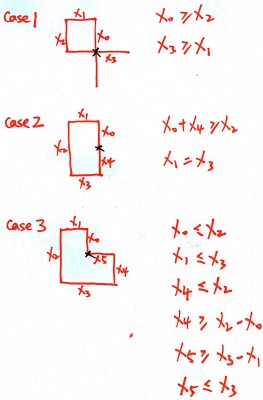 Case 1
x₁
x₂
x₀
x₃
x₀ ≥ x₂
x₃ ≥ x₁
Case 2
x₁
x₀
x₂
x₄
x₃
x₀ + x₄ ≥ x₂
x₁ = x₃
Case 3
x₁
x₀
x₂
x₅
x₄
x₃
x₀ ≤ x₂
x₁ ≤ x₃
x₄ ≤ x₂
x₄ ≥ x₂ - x₀
x₅ ≥ x₃ - x₁
x₅ ≤ x₃